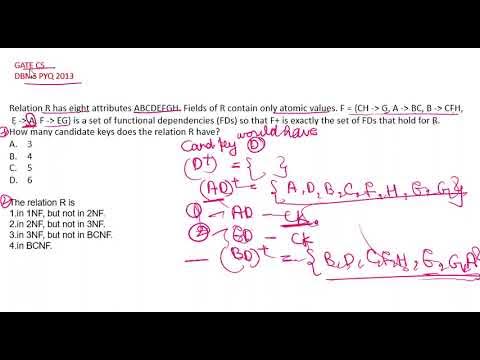 GATE CS
DBMS PYQ 2013
Relation R has eight attributes ABCDEFGH. Fields of R contain only atomic values. F = {CH -> G, A -> BC, B -> CFH,
E -> A, F -> EG} is a set of functional dependencies (FDs) so that F+ is exactly the set of FDs that hold for R.
1 How many candidate keys does the relation R have?
would have
A. 3
Cand key D
B. 4
(D)+ = { }
C. 5
(AD)+ = { A, D, B, C, F, H, E, G }
D. 6
1 AD - CK
2 The relation R is
2 ED - CK
1.in 1NF, but not in 2NF.
(BD)+ = { B, D, C, F, H, E, G, A }
2.in 2NF, but not in 3NF.
3.in 3NF, but not in BCNF.
4.in BCNF.